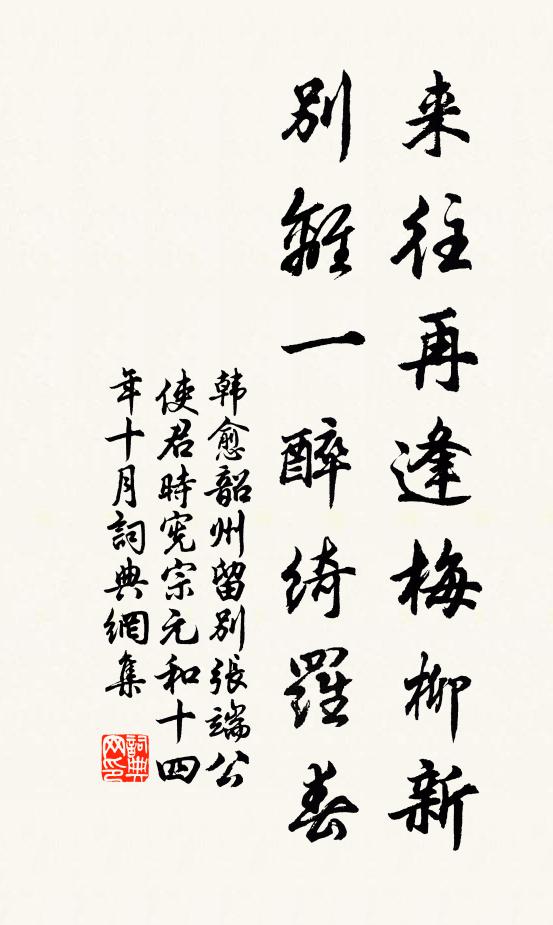 来往再逢梅柳新
別離一醉綺羅春
韩愈韶州留别張端公
使君時宪宗元和十四
年十月詞典網集
詞典
网印